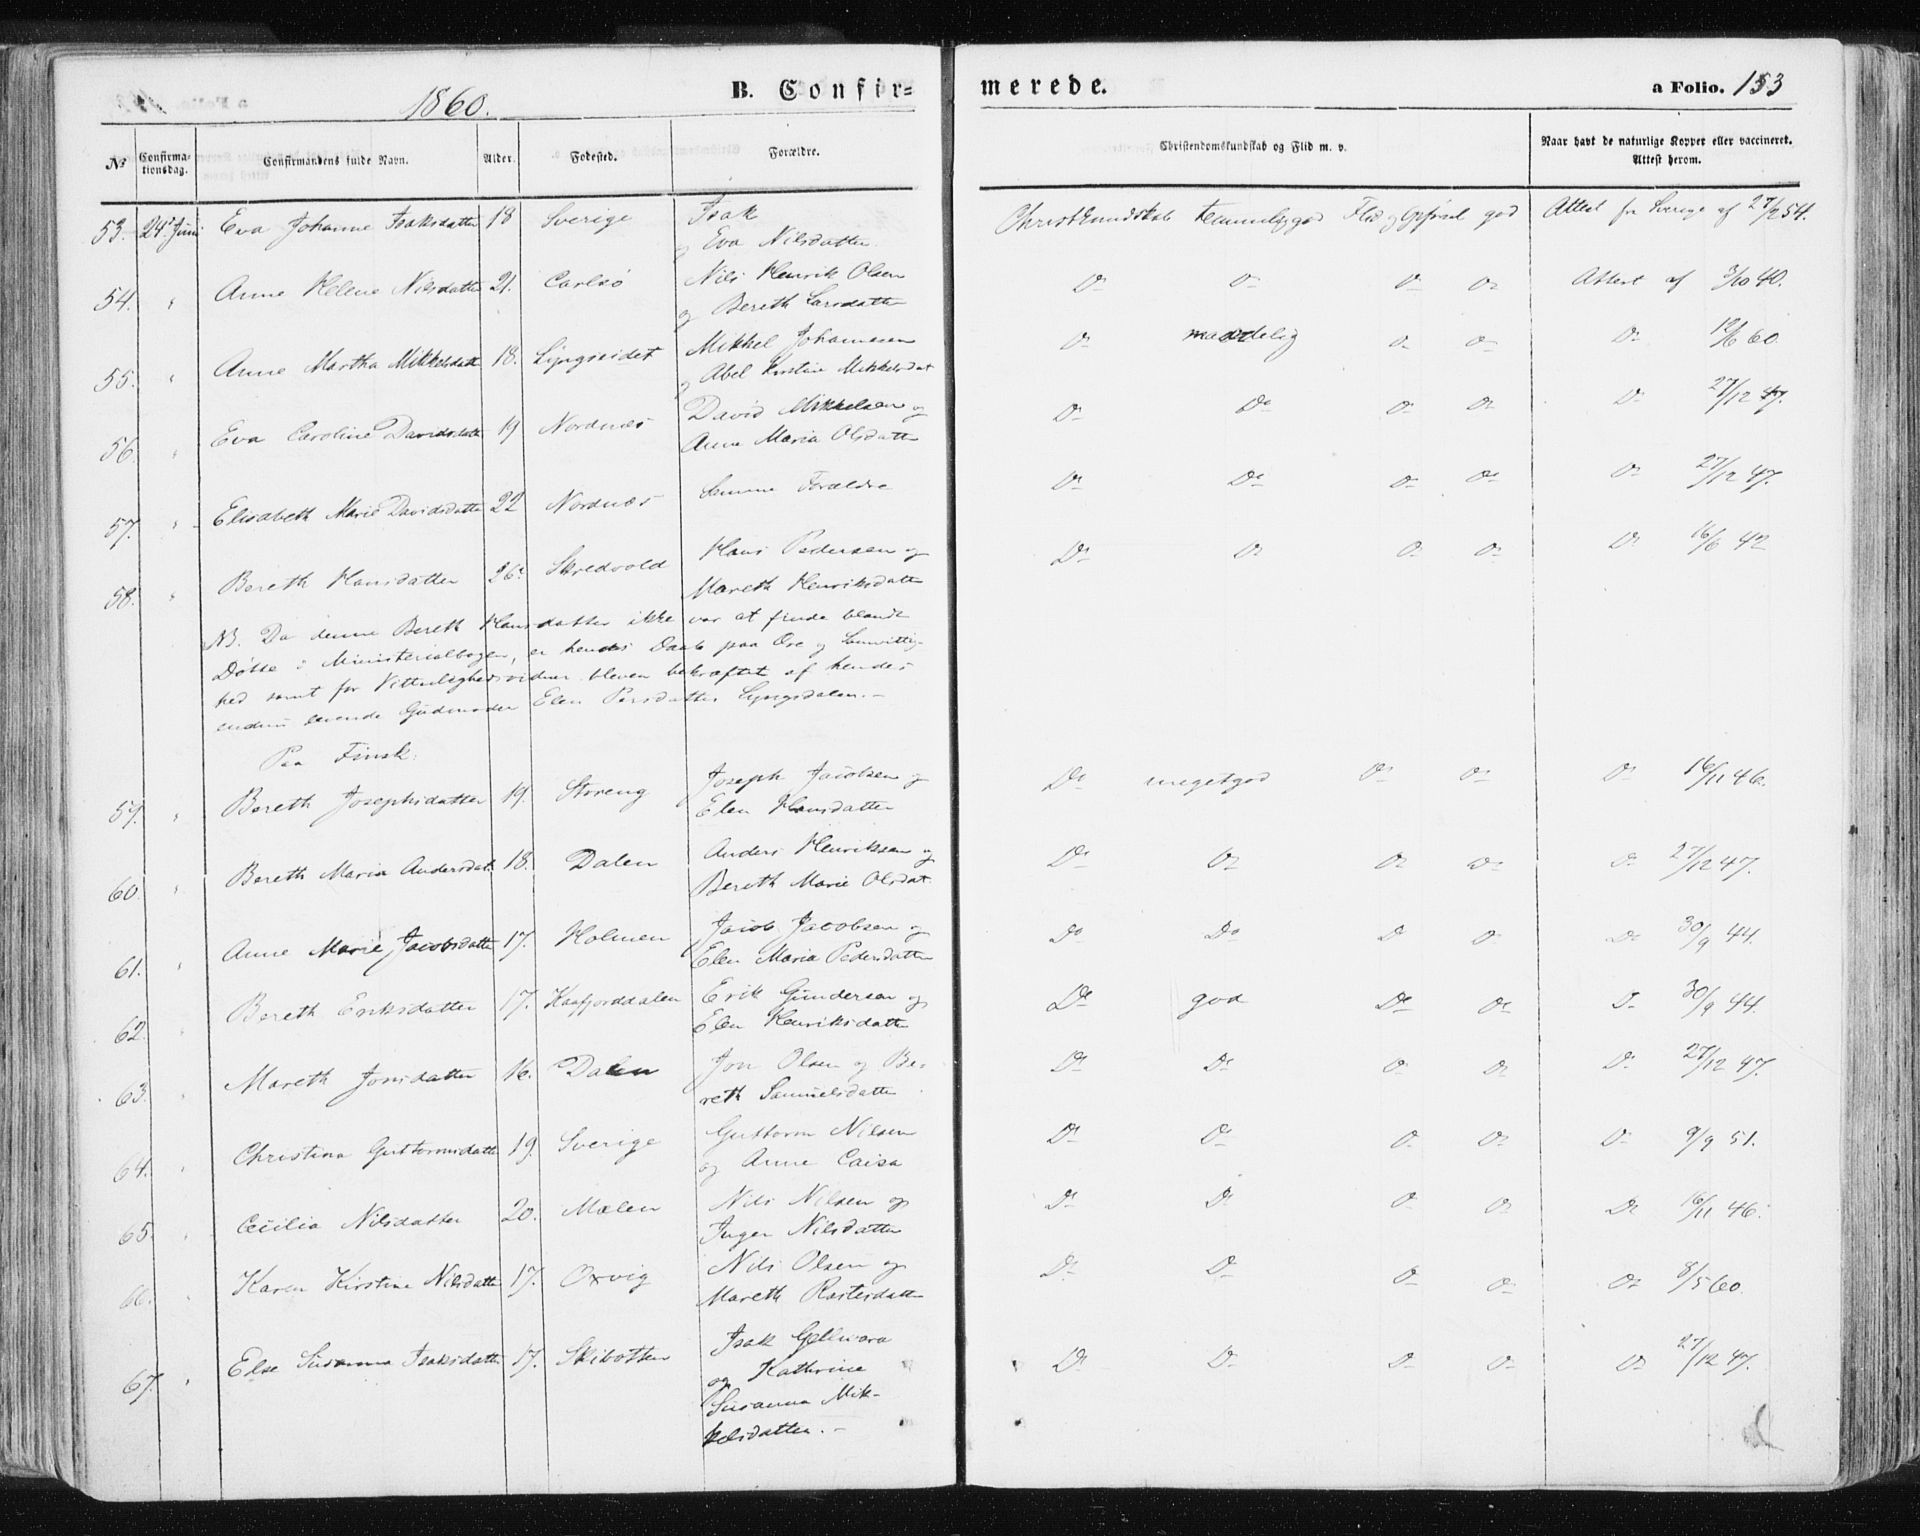 1860. B. Confir= merede. a Folio. 153
No Confirma-tionsdag. Confirmandens fulde Navn. Alder. Fodested. Forældre. Christendomskundskab og Flid m. v. Naar havt de naturlige Kopper eller vaccineret. Attest herom.
53. 24de Juni Eva Johanne Isaksdatter 18 Sverige Isak Christkundskab temmelig god Flid og Opførsel god Attest fra Sverige af 27/12 54.
og Eva Nilsdatter.
54. " Anne Helene Nilsdatter 21. Carlsø Nils Henrik Olsen Do Do Do Do Attest af 3/10 40.
og Bereth Larsdatter
55. " Anne Martha Mikkelsdatt 18. Lyngseidet Mikkel Johannesen Do maadelig Do Do Do 12/6 60.
og Abel Kirstine Mikkelsdat
56. " Eva Caroline Davidsdatt 19 Nordnæs David Mikkelsen og Do Do Do Do Do 27/12 47.
Anne Maria Olsdatter
57. " Elisabeth Marie Davidsdatter 22 Nordnæs Samme Forældre Do Do Do Do Do 27/12 47.
58. " Bereth Hansdatter 26 Skredvold Hans Pedersen og Do Do Do Do Do 16/6 42
Mareth Henriksdatter
NB. Da denne Bereth Hansdatter ikke var at finde blandt
Døbte i Ministerialbogen, er hendes Daab paa Ære og Samvittig-
hed samt for Vitterlighedsvidner bleven bekræftet af hendes
endnu levende Gudmoder Elen Persdatter Lyngsdalen.-
Paa Finsk.
59. " Bereth Josephsdatter 19. Storeng Joseph Jacobsen og Do megetgod Do Do Do 16/11 46.
Elen Hansdatter
60. " Bereth Maria Andersdat. 18. Dalen Anders Henriksen og Do Do Do Do Do 27/12 47.
Bereth Marie Olsdat.
61. " Anne Marie Jacobsdatter 17. Holmen Jacob Jacobsen og Do Do Do Do Do 30/9 44.
Elen Maria Pedersdatter
62. " Bereth Eriksdatter 17. Kaafjorddalen Erik Gundersen og Do god Do Do Do 30/9 44.
Elen Henriksdatter
63. " Mareth Jonsdatter 16. Dalen Jon Olsen og Be- Do Do Do Do Do 27/12 47.
reth Samuelsdatter
64. " Christina Guttormsdatter 19. Sverige Guttorm Nilsen Do Do Do Do Do 9/9 51.
og Anne Caisa
65. " Cecilia Nilsdatter 20. Mælen Nils Nilsen og Do Do Do Do Do 16/11 46.
Inger Nilsdatter
66. " Karen Kirstine Nilsdatter 17. Oxvig Nils Olsen og Do Do Do Do Do 8/5 60.
Mareth Rastesdatter
67. " Else Susanna Isaksdatter 17. Skibotten Isak Gellivara Do Do Do Do Do 27/12 47.
og Kathrine
Susanna Mik-
kelsdatter.-